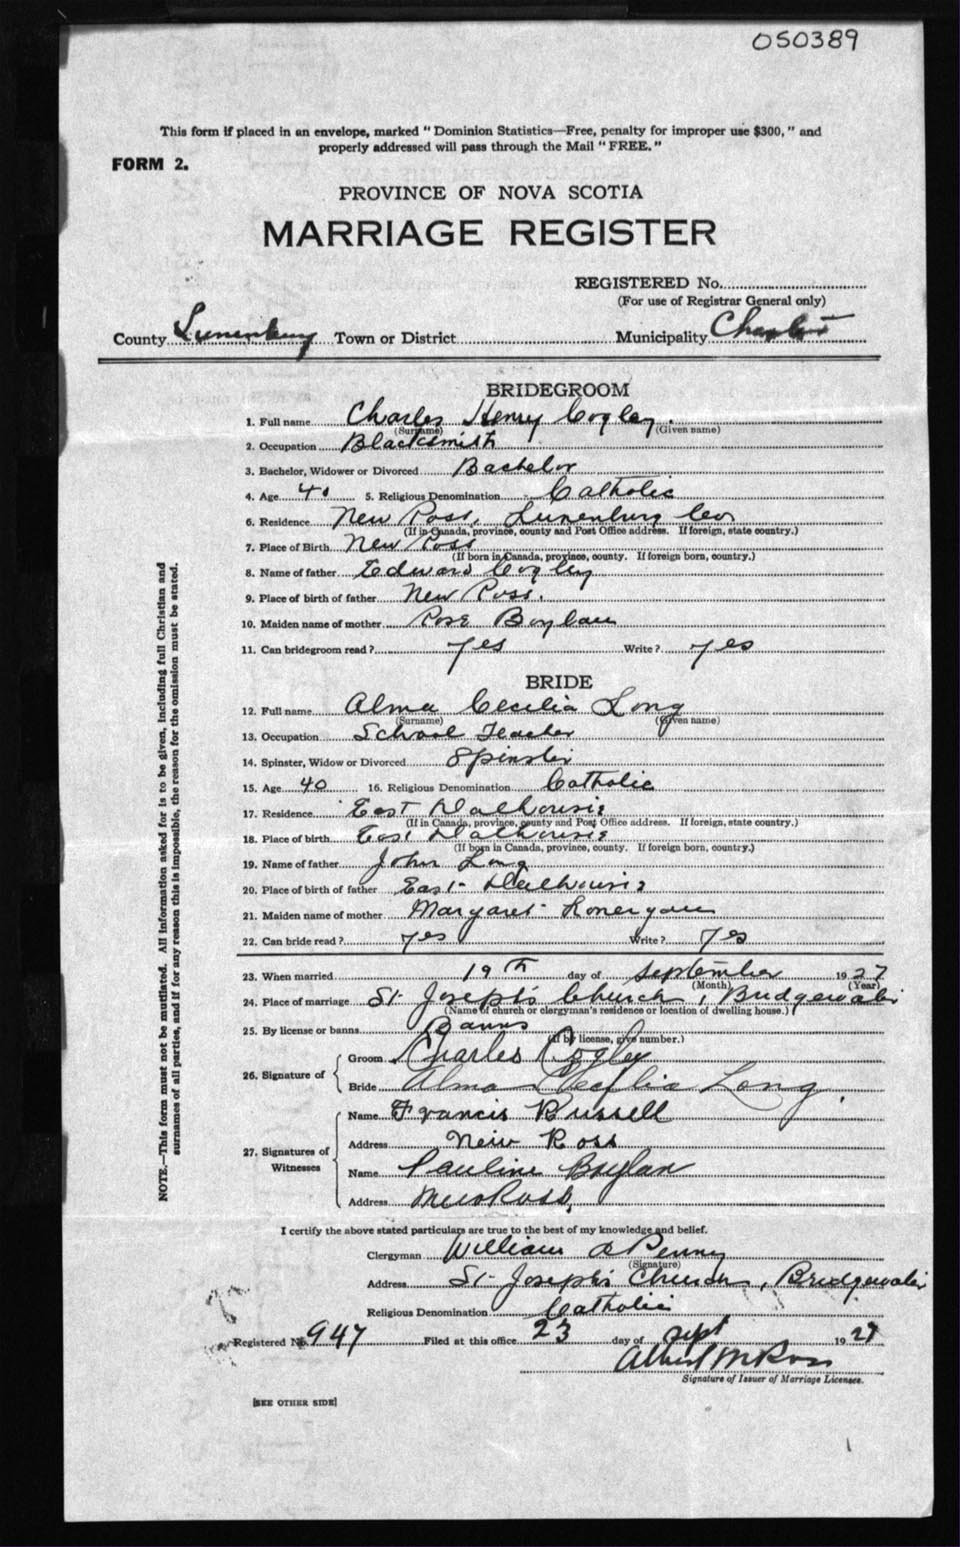 050389
This form if placed in an envelope, marked "Dominion Statistics—Free, penalty for improper use $300," and
properly addressed will pass through the Mail "FREE."
FORM 2.
PROVINCE OF NOVA SCOTIA
MARRIAGE REGISTER
REGISTERED No.
(For use of Registrar General only)
County Lunenburg Town or District Municipality Chester
BRIDEGROOM
1. Full name Charles Henry Cogley.
(Surname) (Given name)
2. Occupation Blacksmith
3. Bachelor, Widower or Divorced Bachelor
4. Age 40 5. Religious Denomination Catholic
6. Residence New Ross, Lunenburg Co
(If in Canada, province, county and Post Office address. If foreign, state country.)
7. Place of Birth New Ross
(If born in Canada, province, county. If foreign born, country.)
8. Name of father Edward Cogley
9. Place of birth of father New Ross.
10. Maiden name of mother Rose Boylan
11. Can bridegroom read? yes Write? yes
BRIDE
12. Full name Alma Cecilia Long
(Surname) (Given name)
13. Occupation School Teacher
14. Spinster, Widow or Divorced Spinster
15. Age 40 16. Religious Denomination Catholic
17. Residence East Dalhousie
(If in Canada, province, county and Post Office address. If foreign, state country.)
18. Place of birth East Dalhousie
(If born in Canada, province, county. If foreign born, country.)
19. Name of father John Long
20. Place of birth of father East Dalhousie
21. Maiden name of mother Margaret Lonergan
22. Can bride read? yes Write? yes
23. When married 19th day of September 1927
(Month) (Year)
24. Place of marriage St. Joseph's Church, Bridgewater
(Name of church or clergyman's residence or location of dwelling house.)
25. By license or banns Banns
(If by license, give number.)
26. Signature of Groom Charles Cogley
Bride Alma Cecilia Long.
27. Signatures of Witnesses Name Francis Russell
Address New Ross
Name Pauline Boylan
Address New Ross,
I certify the above stated particulars are true to the best of my knowledge and belief.
Clergyman William A Penny
(Signature)
Address St. Joseph's Church, Bridgewater
Religious Denomination Catholic
Registered No. 947 Filed at this office 23 day of Sept 1927
Albert M Ross
Signature of Issuer of Marriage Licenses.
[SEE OTHER SIDE]
NOTE.—This form must not be mutilated. All information asked for is to be given, including full Christian and
surnames of all parties, and if for any reason this is impossible, the reason for the omission must be stated.